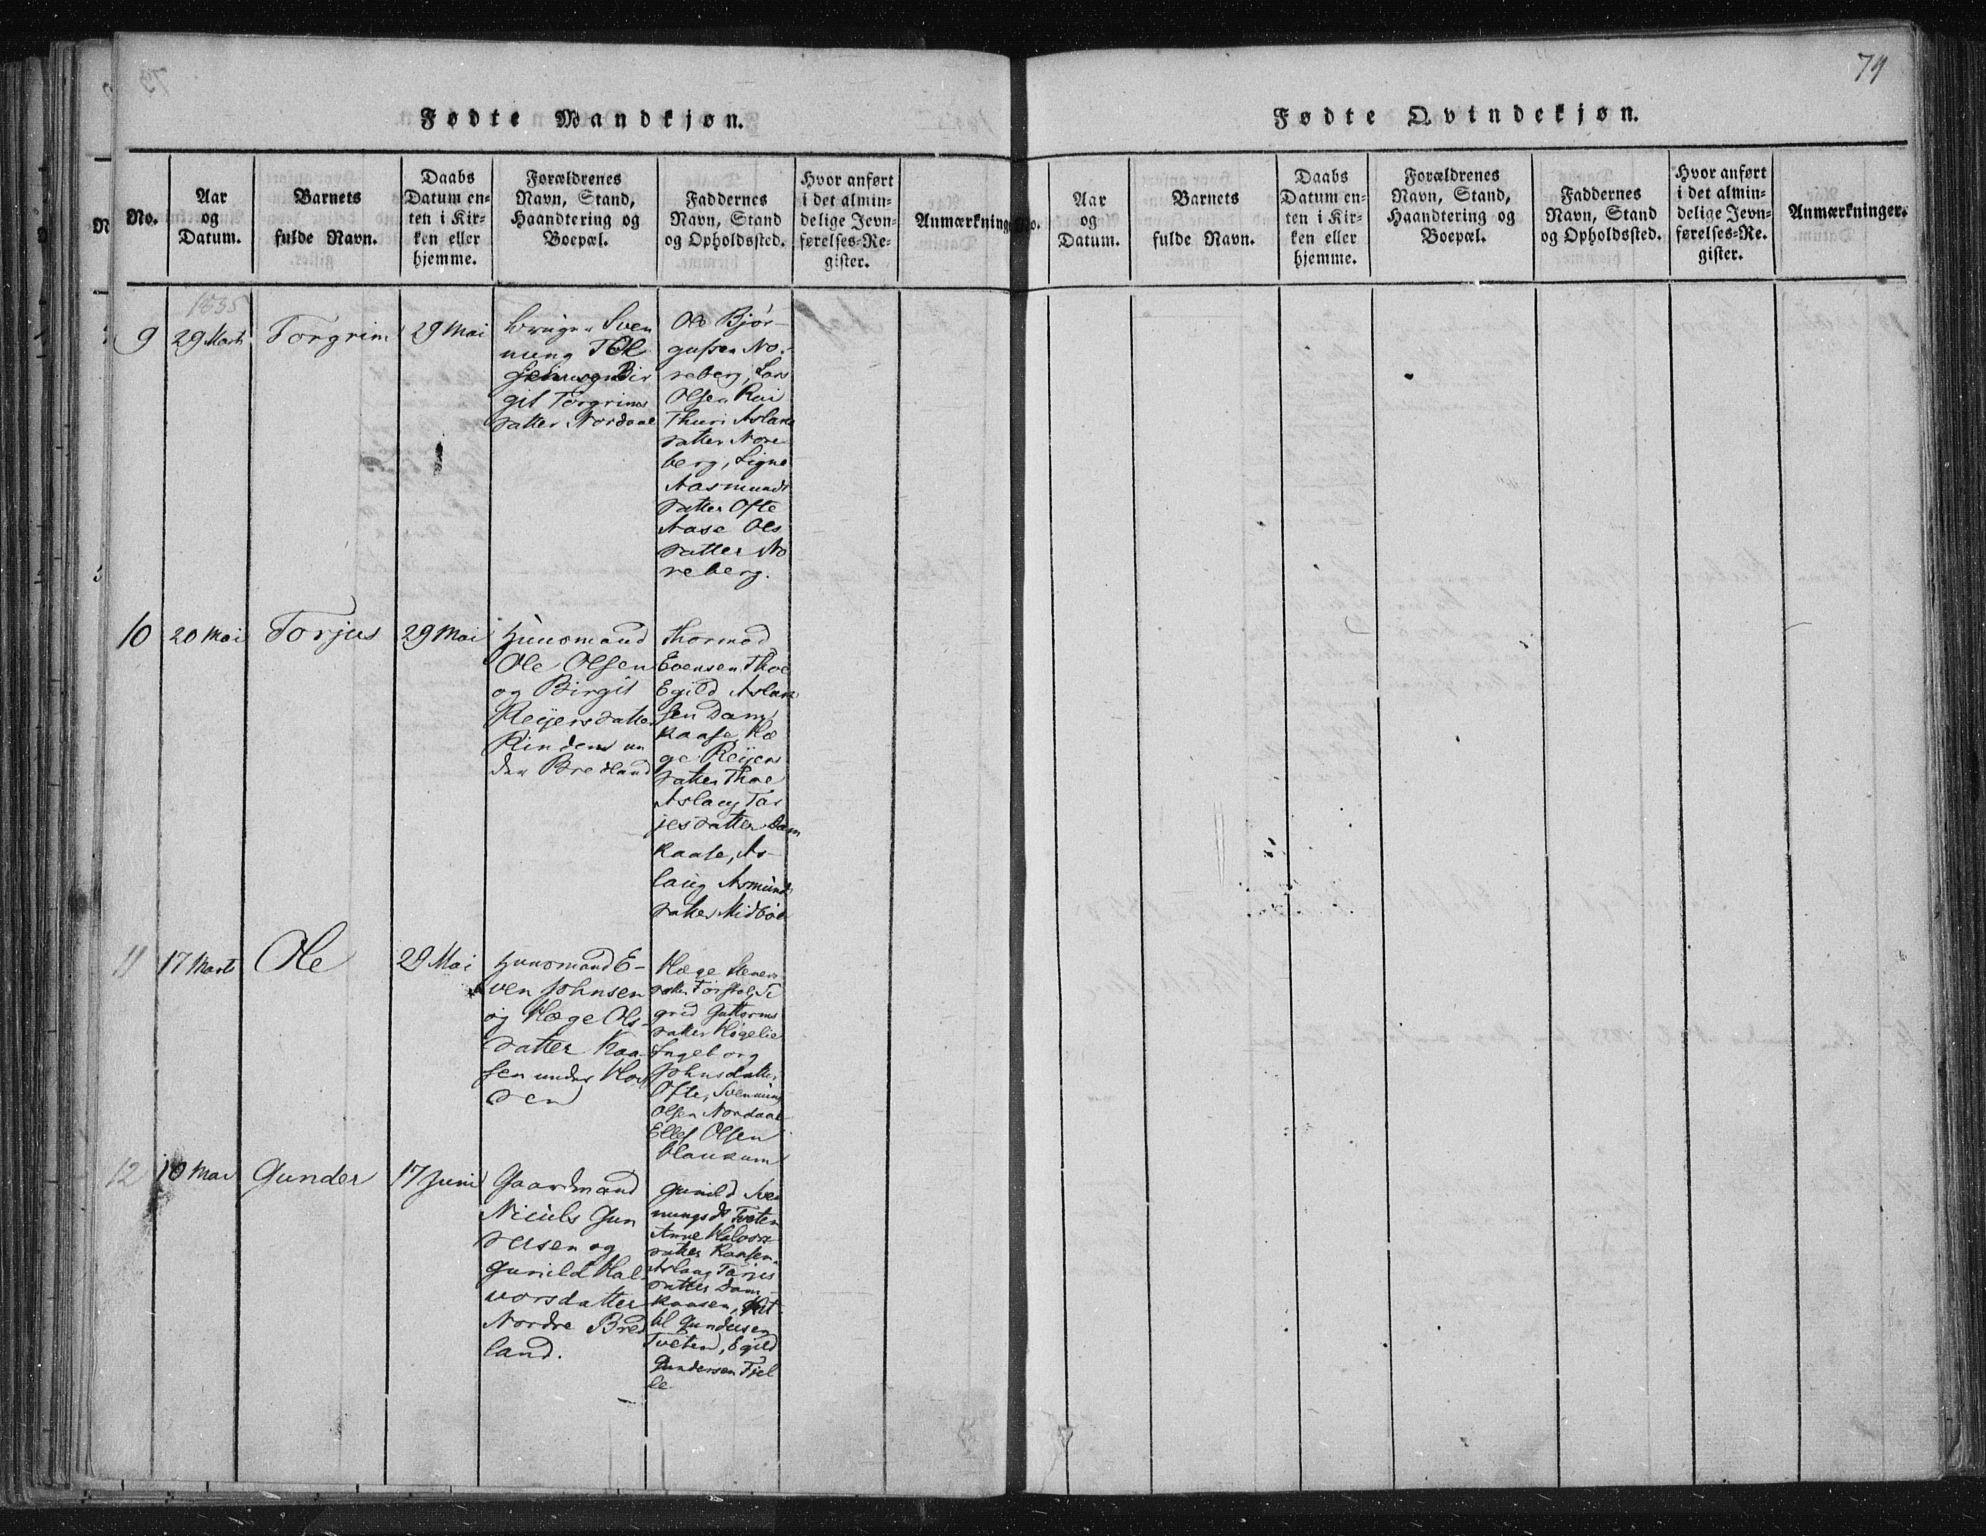 79
Fødte Mandkjøn.
No.
Aar
og
Datum.
Barnets
fulde Navn.
Daabs
Datum en-
ten i Kir-
ken eller
hjemme.
Forældrenes
Navn, Stand,
Haandtering og
Boepæl.
Faddernes
Navn, Stand
og Opholdssted.
Hvor anført
i det almin-
delige Jevn-
førelses-Re-
gister.
Anmærkninger
1835
9
29 Marts
Torgrim
29 Mai
Bruger Sven
nung
og Bir
git Torgrims
datter Nordaae
Ole Bjør-
gufsen No-
reberg, Lars
Olsen Rui
Thuri Aslaks
datter Nore
berg, Signe
Aasmunds
datter Ofte
Aase Ols
datter No
reberg.
10
20 Mai
Torjus
29 Mai
Huusmand
Ole Olsen
og Birgit
Reijersdatter
Rinden un
der Bredland
Thormod
Evensen Thoe
Egild Aslak
sen Dam
kaase, Hæ
ge Reijers
datter Thoe
Aslaug Tar
jesdatter Dam
kaase, As-
laug Asmunds
datter Midbøe
11
17 Marts
Ole
29 Mai
Huusmand E-
ven Johnsen
og Hæge Ols-
datter Kaa-
sen under
Hæge Steners
datter
grid Guttorms
datter Høgelie
Ingeborg
Johnsdatter
Ofte, Svennung
Olsen Nordaae
Ellef Olsen
Haukum
12
10 Mai
Gunder
17 Juni
Gaardmand
Niculs Gun
dersen og
Gunild Hal
vorsdatter
Nordre Bred
land.
Gunild Sve
nungsd Tveten
Anne Halvors
datter Kaasen
Aslaug Tarjes
datter Dam-
kaasen, Kit
til Gundersen
Tveten, Egild
Gundersen Fjel
le
Fødte Qvindekjøn.
No.
Aar
og
Datum.
Barnets
fulde Navn.
Daabs
Datum en-
ten i Kir-
ken eller
hjemme.
Forældrenes
Navn, Stand,
Haandtering og
Boepæl.
Faddernes
Navn, Stand
og Opholdssted.
Hvor anført
i det almin-
delige Jevn-
førelses-Re-
gister.
Anmærkninger.